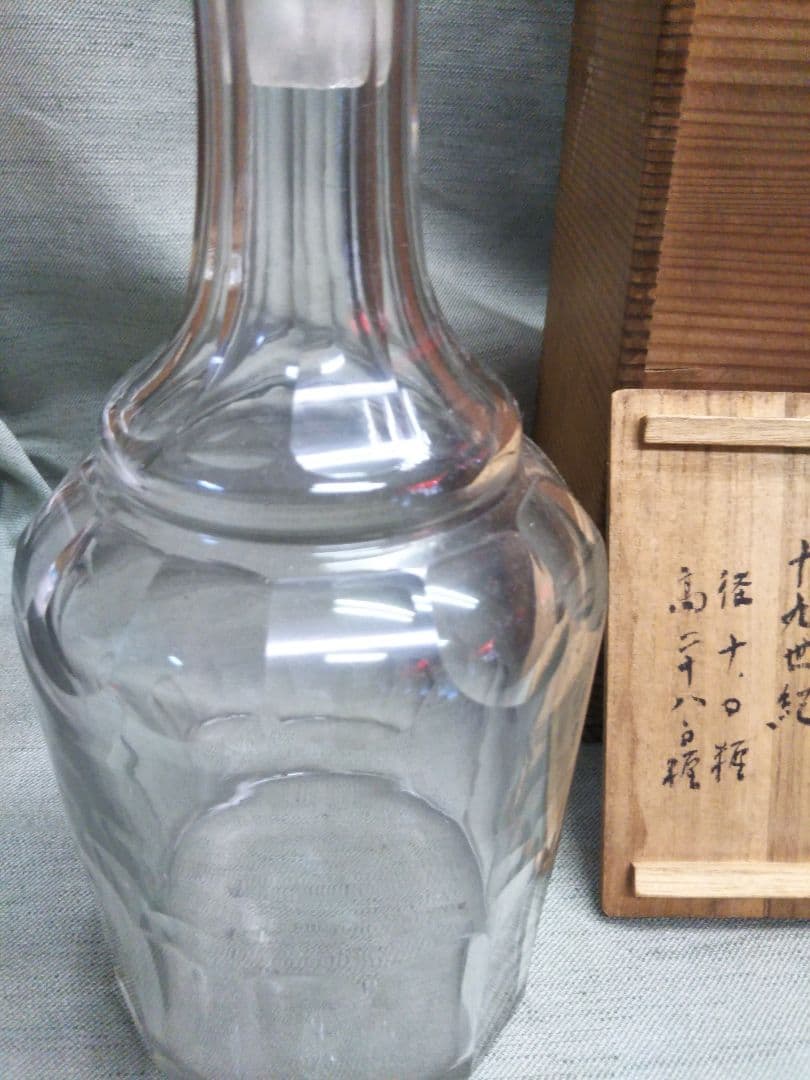 十九世紀
径 十.〇糎
高 二十八.〇糎